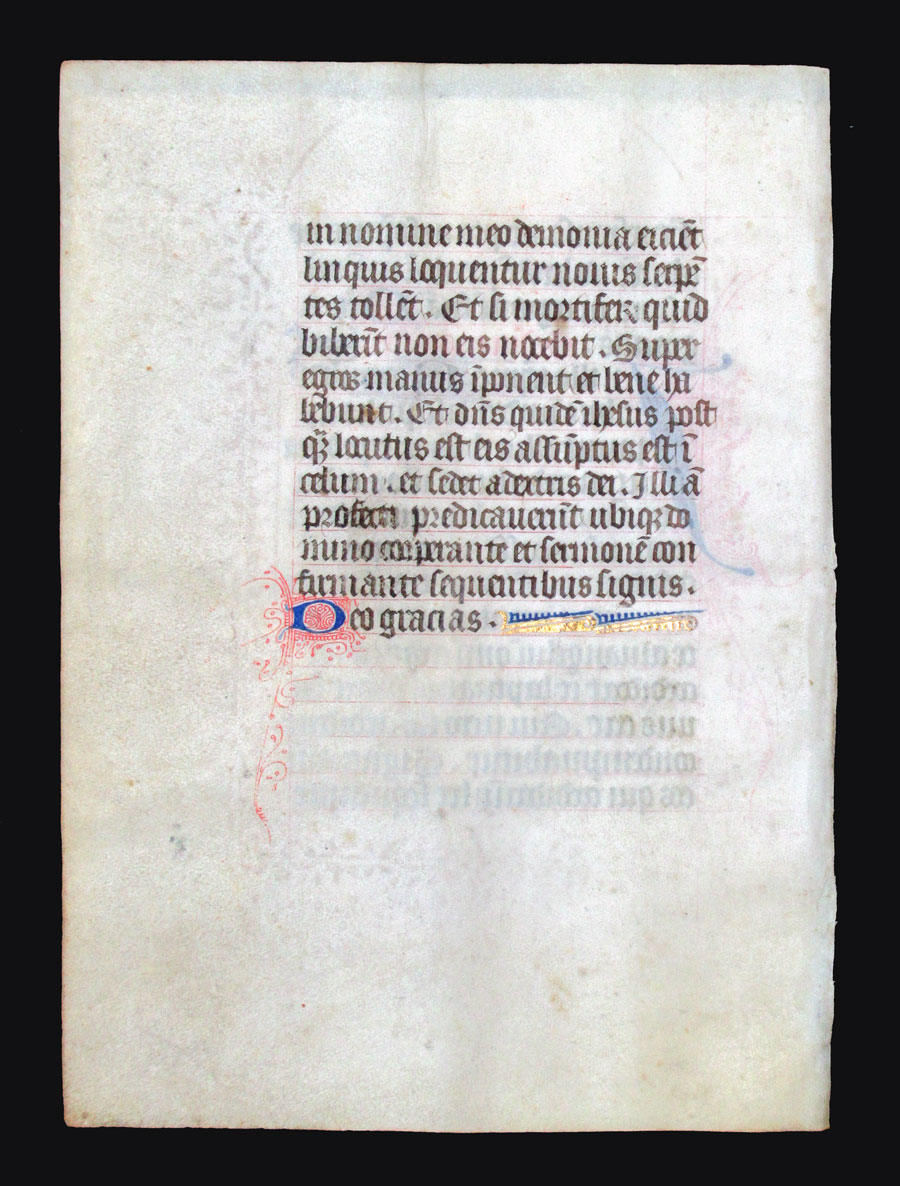 in nomine meo demonia eiciēt
linguis loquentur nouis serpē
tes tollēt. Et si mortiferū quid
biberīt non eis nocebit. Super
egros manus īponent et bene ha
bebunt. Et dn̄s quidē ihesus post
q̄ȝ locutus est eis assūptus est ī
celum. et sedet adextris dei. Illi ā
profecti predicauerūt ubiqȝ do
mino cooperante et sermonē con
firmante sequentibus signis.
Deo gracias.